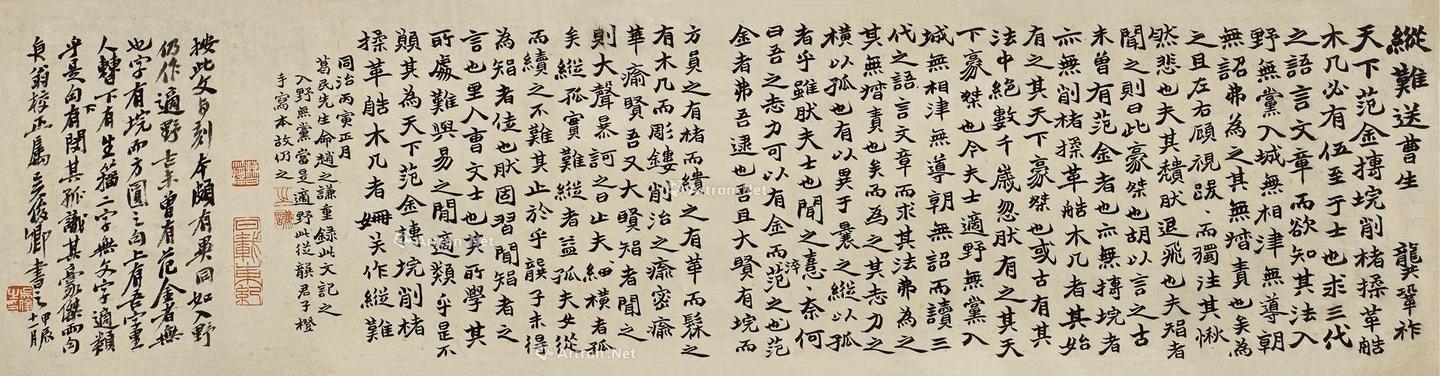 縱難送曹生 龔鞏祚
天下范金摶垸削楮揉革皓
木几必有伍至于士也求三代
之語言文章而欲知其法入
野無黨入城無相津無導朝
無詔弗為之其無責也矣為
之且左右顧視踆踆而獨注其愀
肰悲也夫其頹肰退飛也夫知者
聞之則曰此豪傑也胡以言之古
未曾有范金者也亦無摶垸者
亦無削楮揉革皓木几者其始
有之其天下豪傑也或古有其
法中絕數千歲忽肰有之其天
下豪傑也今夫士適野無黨入
城無相津無導朝無詔而讀三
代之語言文章而求其法弗為之
其無責也矣而為之其志力之
橫以孤也有以異于曩之縱以孤
者乎雖肰夫士也聞之奈何
曰吾之志力可以有金而范之也范
金者弗吾逮也吾且大賢有垸而
方員之有楮而繢之有革而髹之
有木几而彫鏤削治之瘉密瘉
華瘉賢吾又大賢知者聞之
則大聲暴訶之曰止夫細橫者孤
矣縱孤實難縱者益孤夫女從
而續之不難其止於乎龔子未得
為知者佳也肰因習聞知者之
言也里人曹文士也其所學其
所處難與易之閒適類乎是不
顉其為天下范金摶垸削楮
揉革皓木几者姍笑作縱難
同治丙寅正月
葛民先生命趙之謙重錄此文記之
入野無黨當是適野此從龔君子橙
手寫本故仍之
按此文自刻本頗有異同如入野
仍作適野古未曾有范金者無
也字有垸而方圓之句上有吾字里
人轉下有生籀二字無文字適類
乎是句下有閒其孤識其豪傑兩句
貞翁正屬吳俊卿書之甲辰十一月
Artron.Net
Artron.Net
Artron.Net
Artron.Net